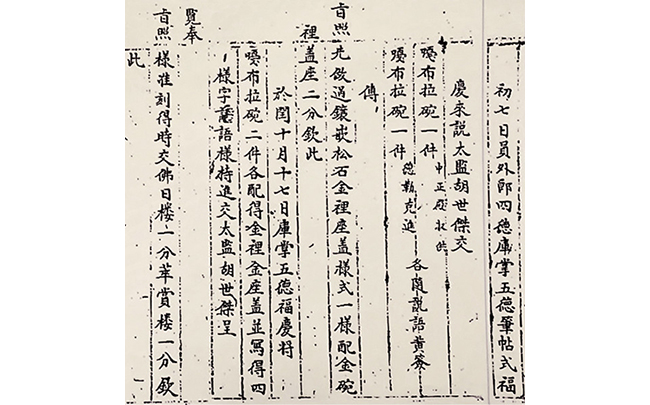 初七日員外郎四德庫掌五德筆帖式福
慶來説太監胡世傑交
嘎布拉碗一件 中正殿收供
嘎布拉碗一件 德勒克進
各隨説語黄簽
傳
旨照先做過鑲嵌松石金裡座盖樣式一樣配金碗
裡盖座二分欽此
於閏十月十七日庫掌五德福慶將
嘎布拉碗二件各配得金裡金座盖並寫得四
樣字語樣持進交太監胡世傑呈
覽奉
旨照樣准刻得時交佛日楼一分萃賞楼一分欽
此